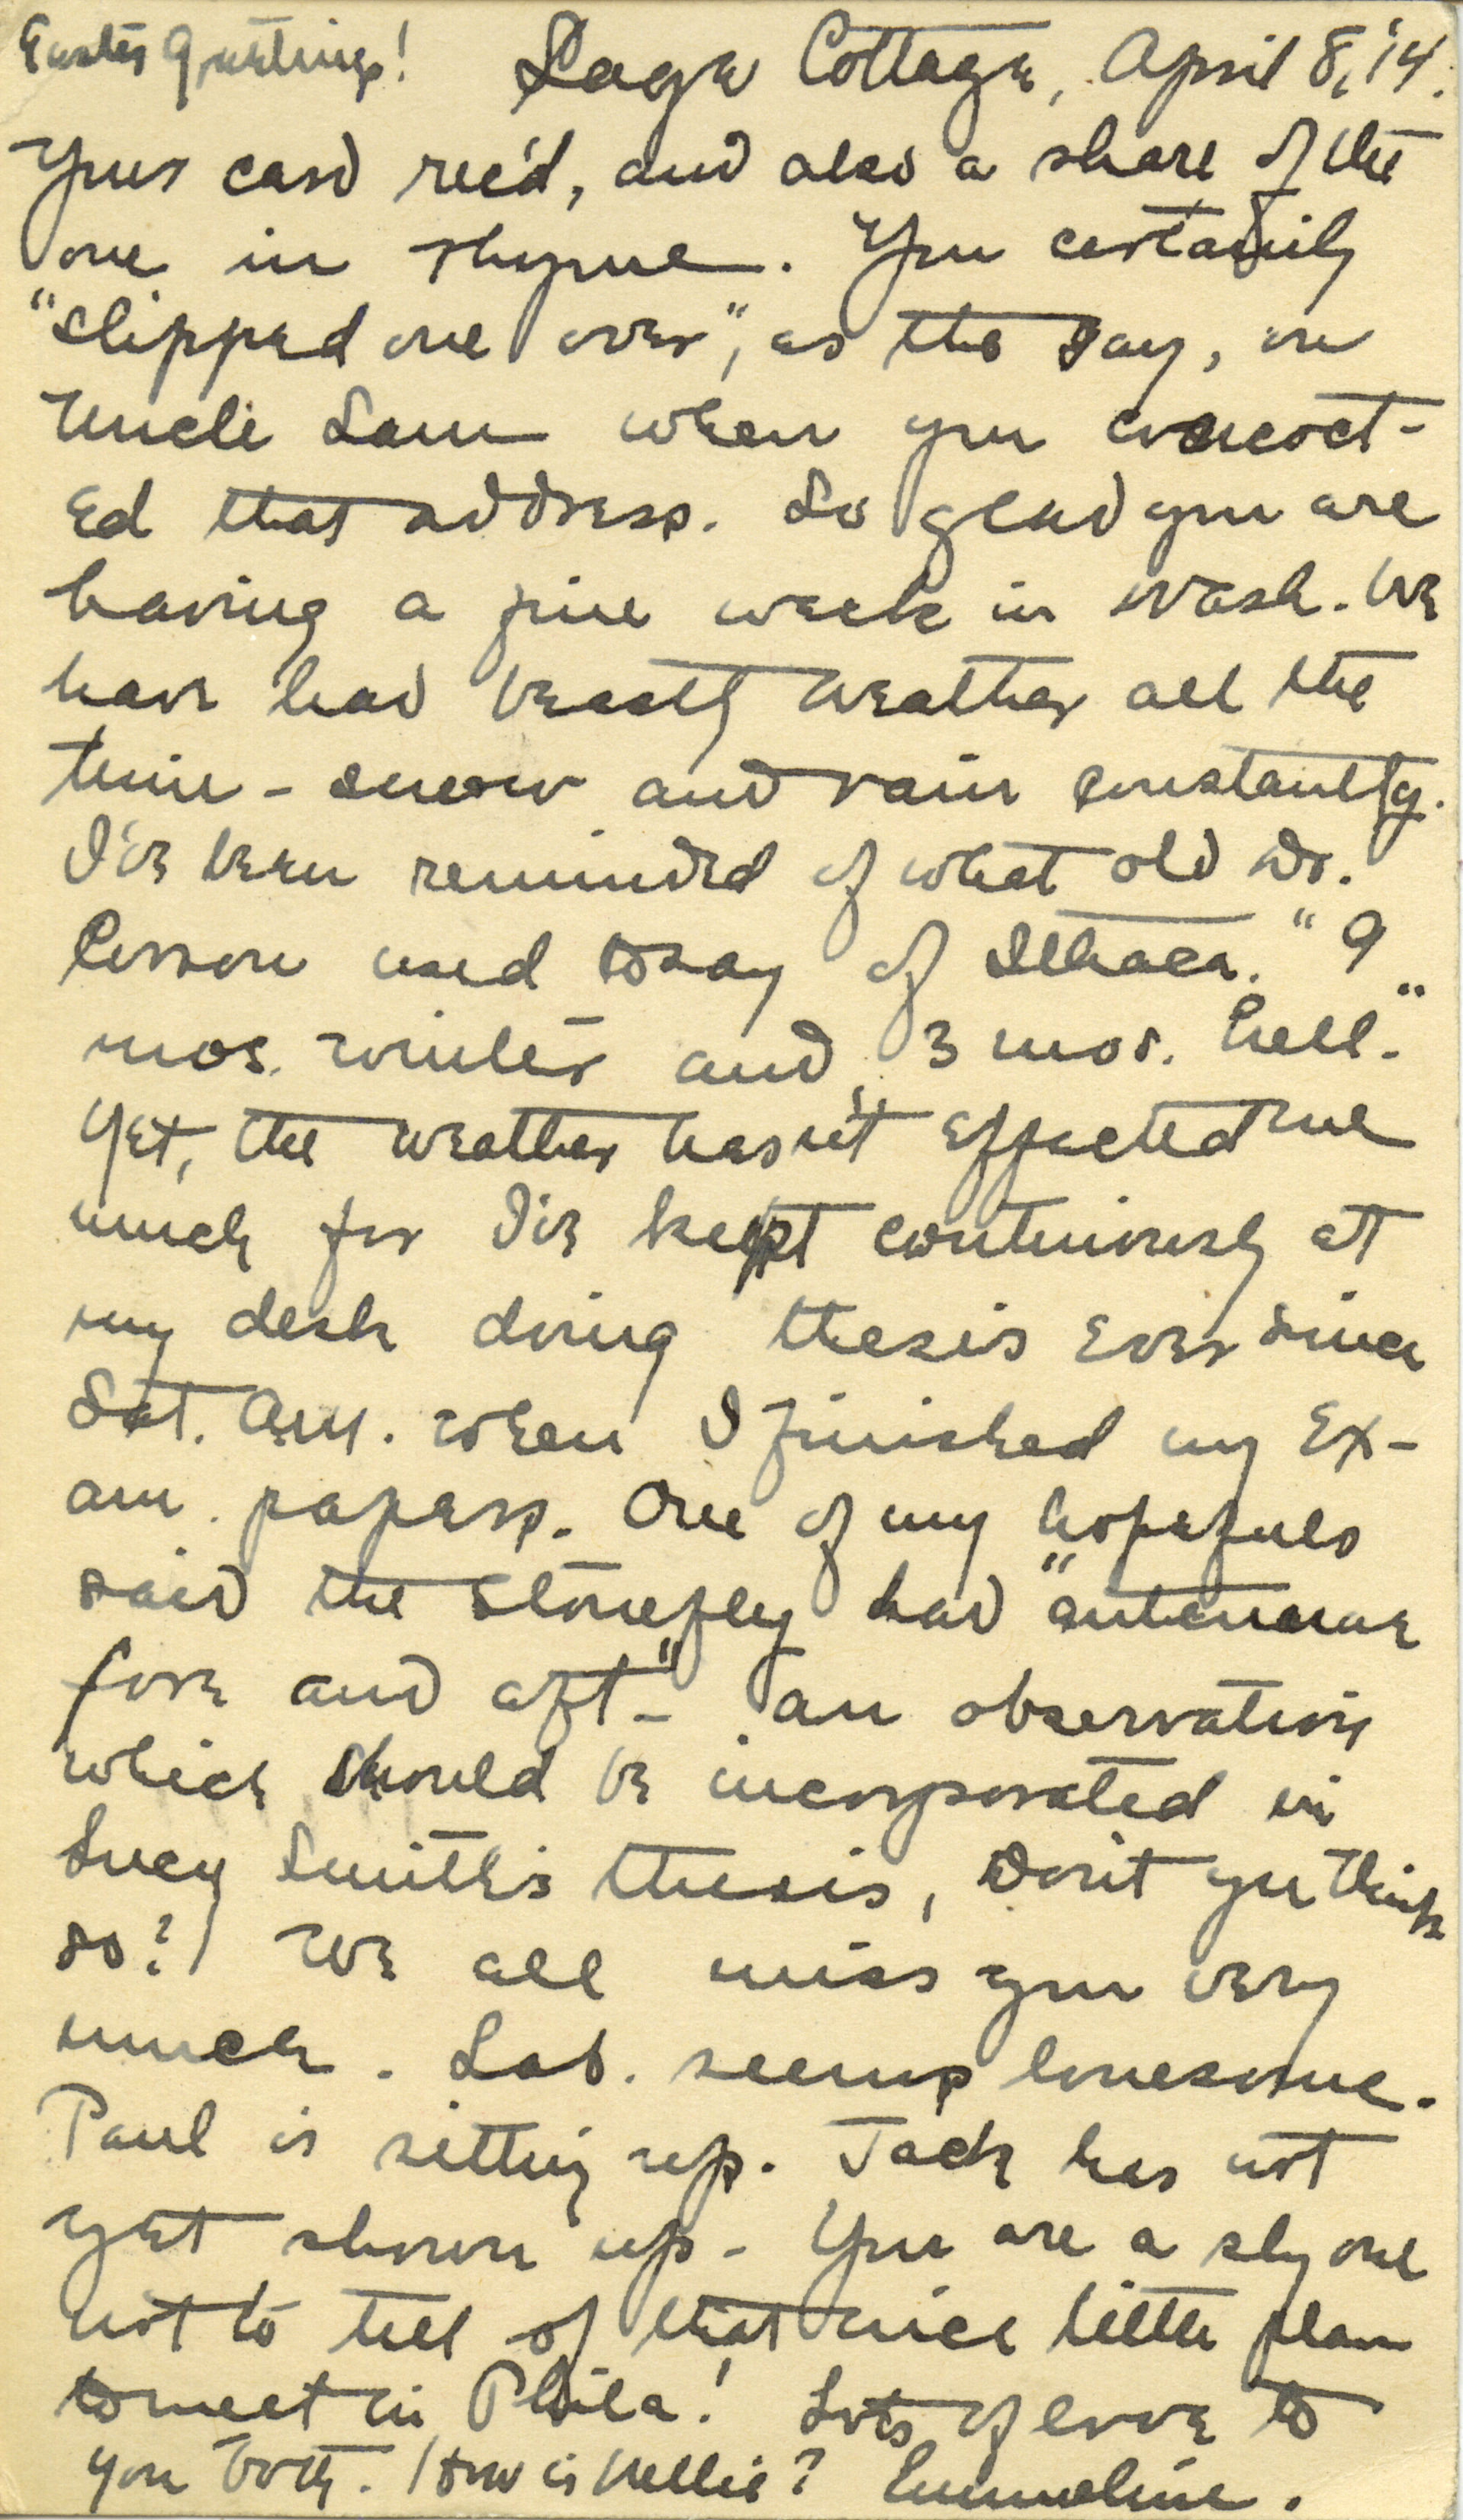 Easter Greetings! Sage Cottage, April 8, '14.
Your card rec'd, and also a share of the
one in rhyme. You certainly
"slipped one over", as the say, on
Uncle Sam when you concoct-
ed that address. So glad you are
having a fine week in Wash. We
have had beastly weather all the
time - snow and rain constantly.
I've been reminded of what old Dr.
used to say of Ithaca. "9
mos. winter and 3 mos. hell."
Yet, the weather hasn't effected me
much for I've kept continuously at
my desk doing thesis ever since
Sat. A.M. when I finished my ex-
am. papers. One of my hopefuls
said the stonefly had "antennae
fore and aft" - an observation
which should be incorporated in
Lucy Smith's thesis, Don't you think
so? We all miss you very
much. Lab. seems lonesome.
Paul is sitting up. Jack has not
yet shown up - You are a sly one
not to tell of that nice little plan
to meet in Phila! Lots of love to
you both. How is Nellie? Emmeline.